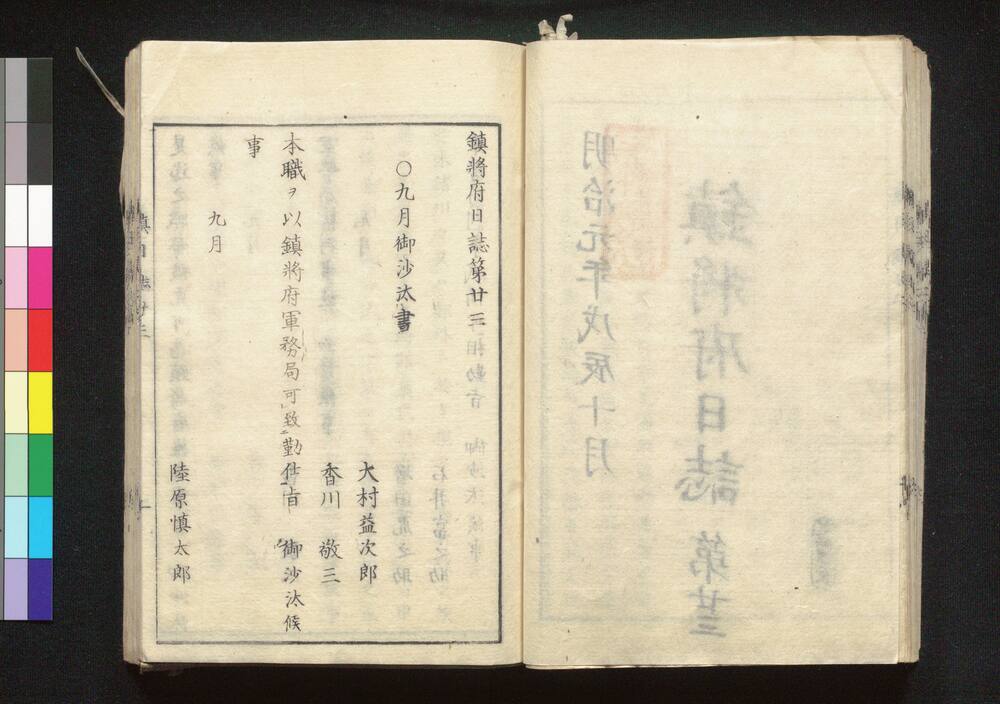 鎮將府日誌第廿三
〇九月御沙汰書
大村益次郎
香川 敬三
本職ヲ以鎮將府軍務局可致勤仕旨 御沙汰候
事
九月
陸原慎太郎
明治元年戊辰十月
鎮將府日誌 第廿三